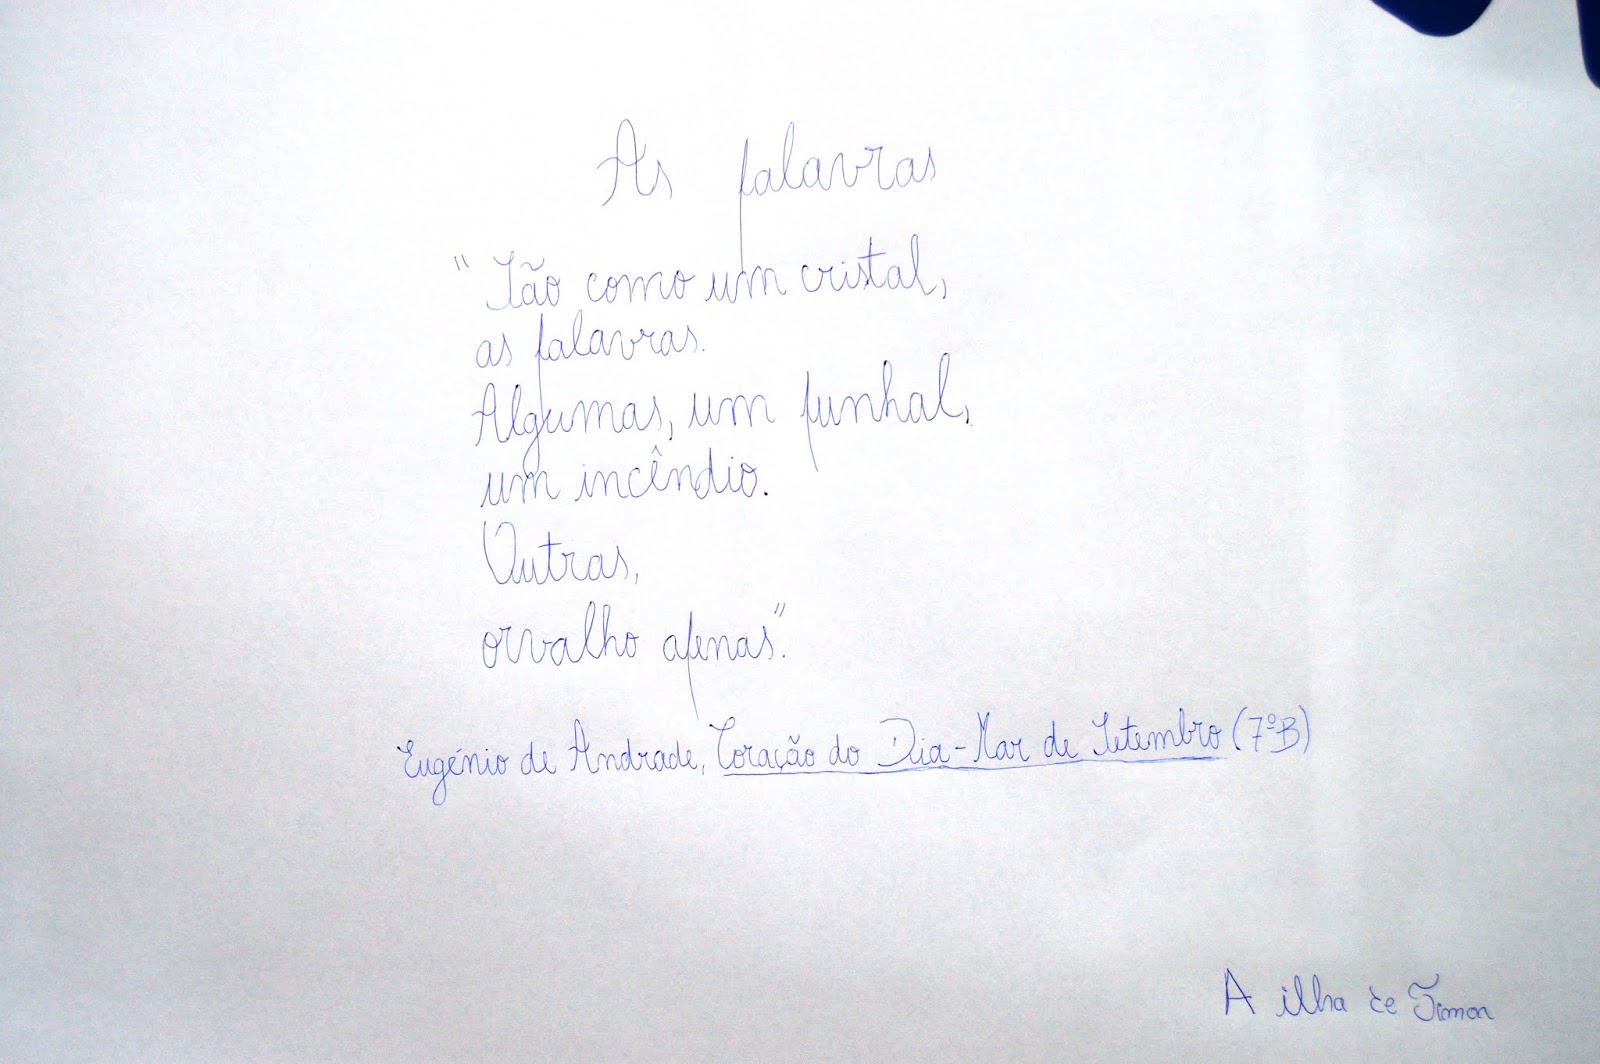 As palavras
"São como um cristal,
as palavras.
Algumas, um punhal,
um incêndio.
Outras,
orvalho apenas".
Eugénio de Andrade, Coração do Dia-Mar de Setembro (7ºB)
A ilha de